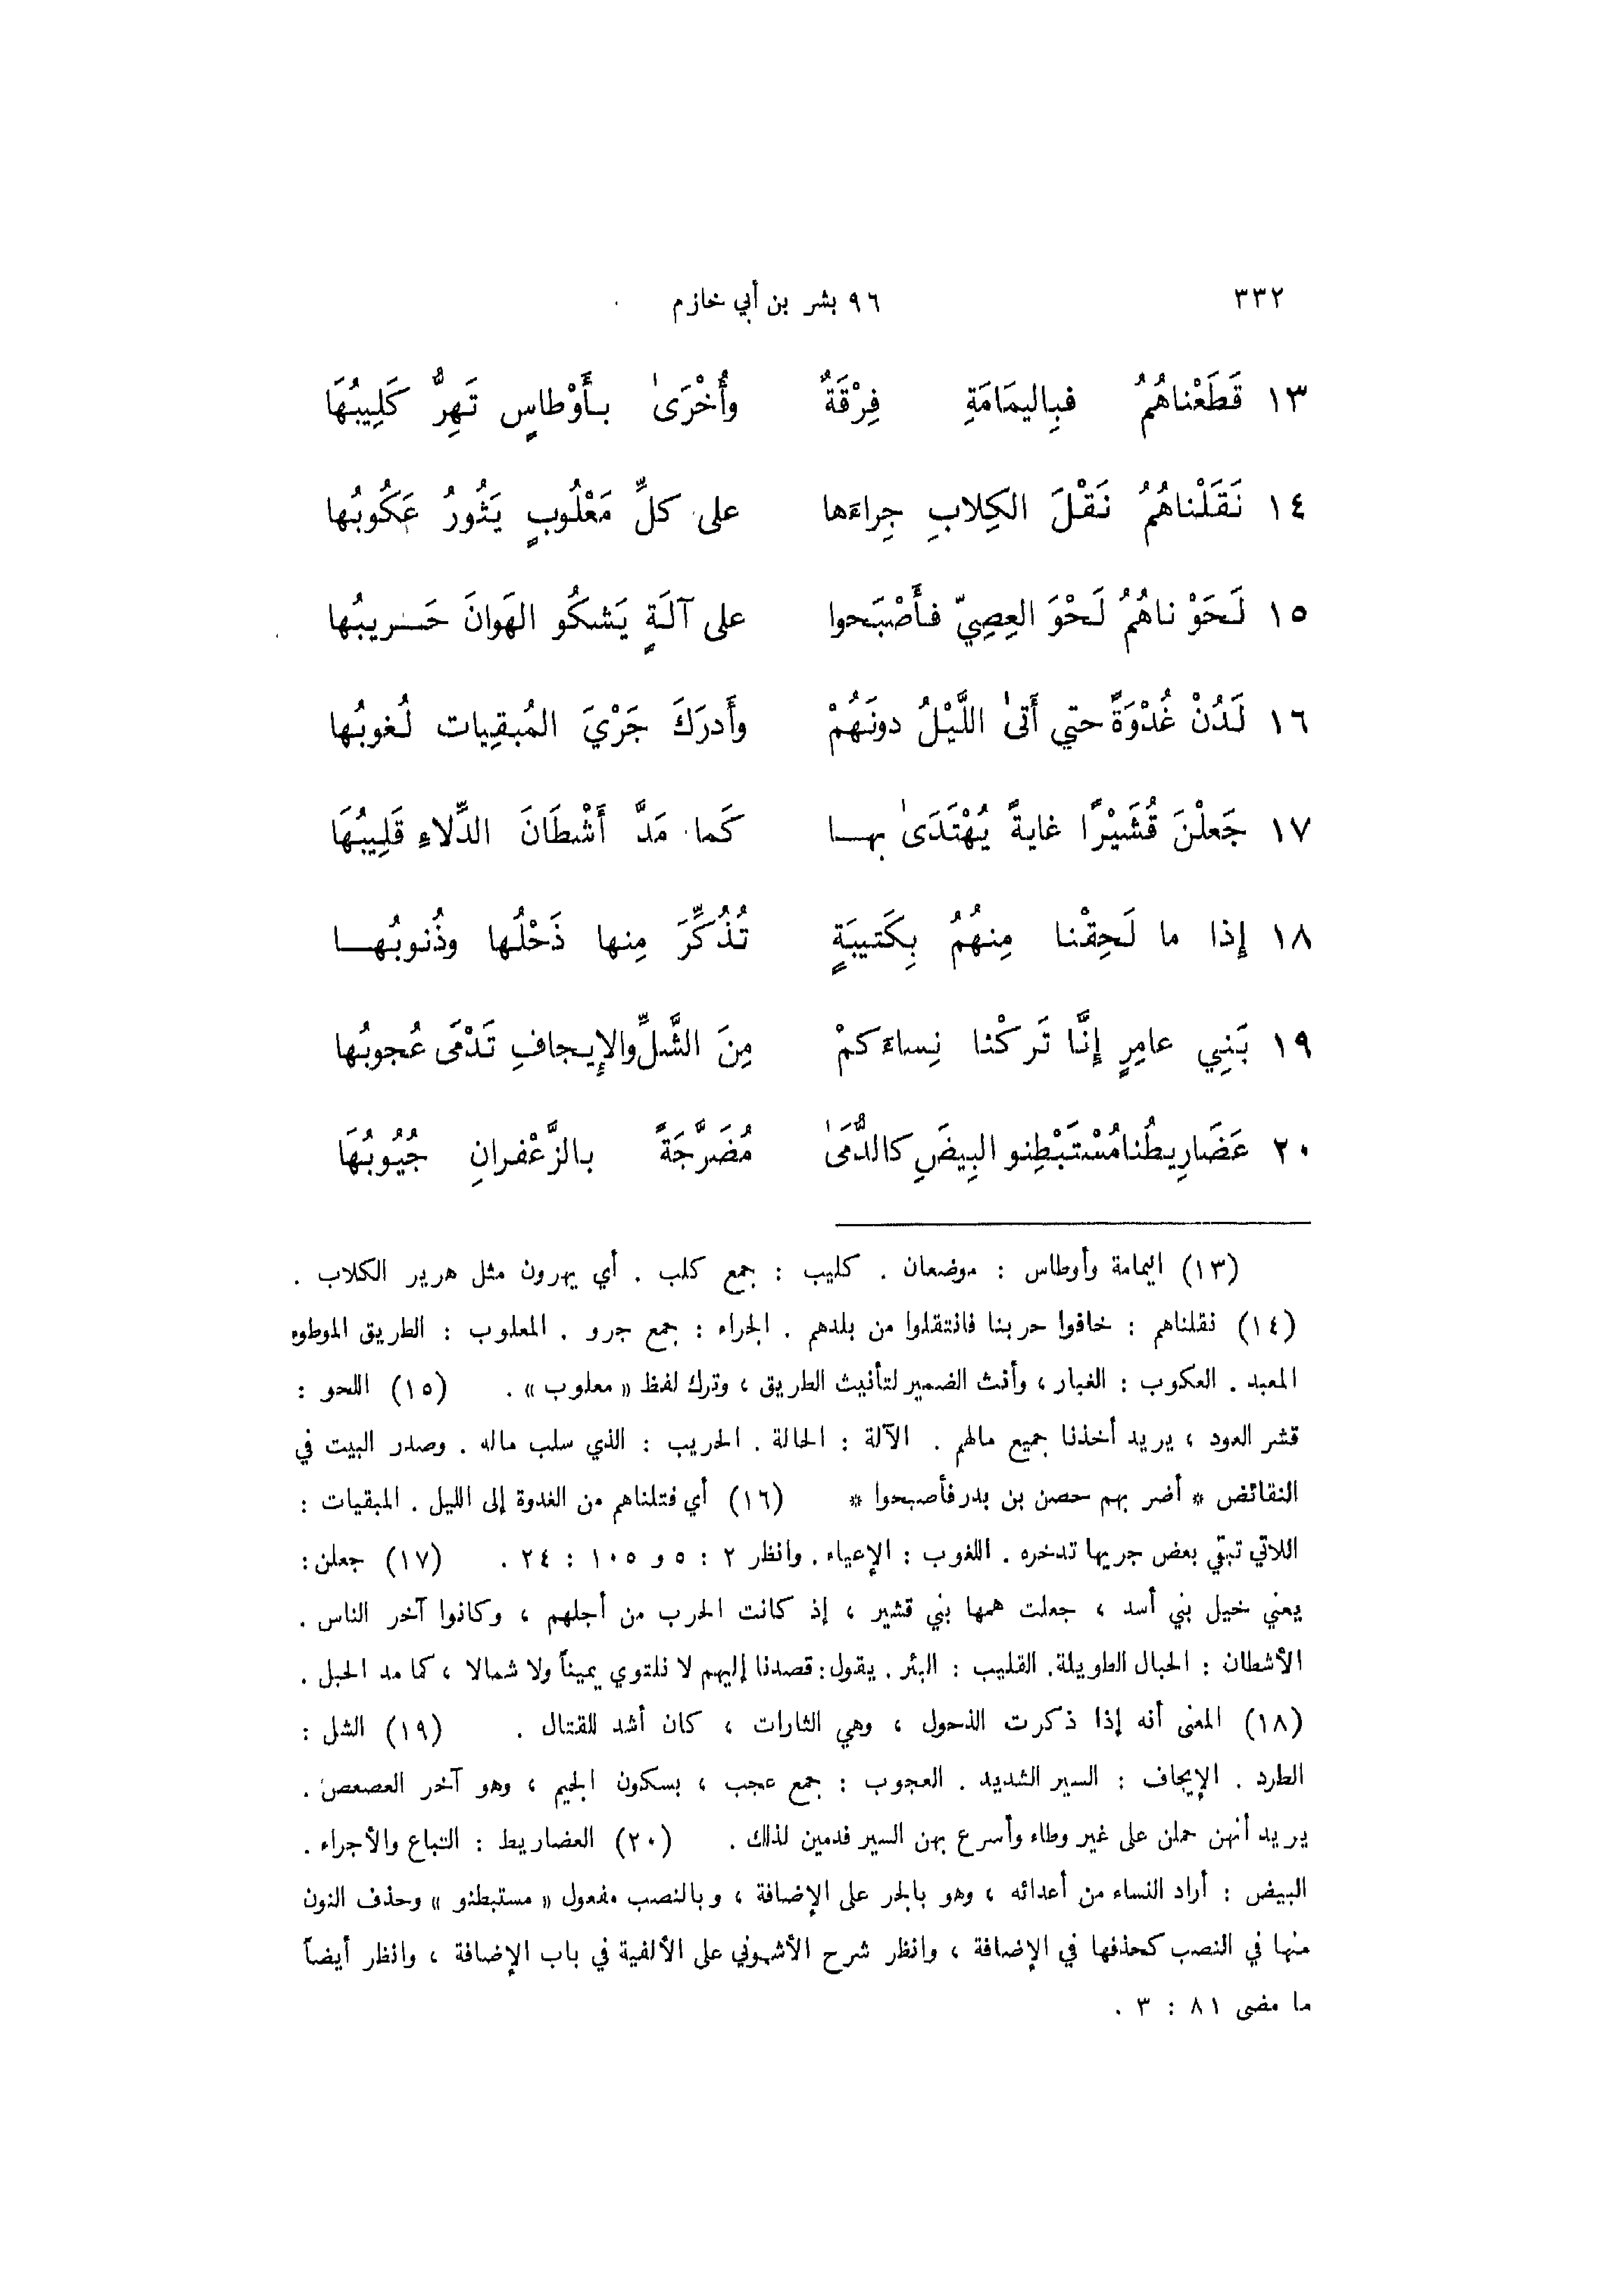 ٣٣٢ ٩٦ بشر بن أبي خازم
١٣ قَطَعْناهُمُ فبِاليمَامَةِ فِرْقَةٌ وأُخْرَىٰ بأَوْطاسٍ تَهِرُّ كَلِيبُهَا
١٤ نَقَلْناهُمُ نَقْلَ الكِلابِ جِراءَها على كلِّ مَعْلُوبٍ يَثُورُ عَكُوبُها
١٥ لَحَوْناهُمُ لَحْوَ العِصِيّ فأَصْبَحوا على آلَةٍ يَشكُو الهَوانَ حَريبُها
١٦ لَدُنْ غُدْوَةً حتى أَتىٰ اللَّيْلُ دونَهُمْ وأَدرَكَ جَرْيَ المُبقِيات لُغوبُها
١٧ جَعلْنَ قُشَيْرًا غايةً يُهْتَدَىٰ بها كَما مَدَّ أَشْطَانَ الدِّلاءِ قَلِيبُهَا
١٨ إِذا ما لَحِقْنا مِنهُمُ بِكَتيبَةٍ تُذُكِّرَ مِنها ذَحْلُها وذُنوبُها
١٩ بَنِي عامِرٍ إِنَّا تَركْنا نِساءَكمْ مِنَ الشَّلِّ والإِيجافِ تَدْمَى عُجوبُها
٢٠ عَضَارِيطُنا مُسْتَبْطِنو البِيضَِ كالدُّمَىٰ مُضَرَّجَةً بالزَّعْفرانِ جُيُوبُهَا
(١٣) اليمامة وأوطاس : موضعان . كليب : جمع كلب . أي يهرون مثل هرير الكلاب .
(١٤) نقلناهم : خافوا حربنا فانتقلوا من بلدهم . الجراء : جمع جرو . المعلوب : الطريق الموطوء
المعبد . العكوب : الغبار ، وأنث الضمير لتأنيث الطريق ، وترك لفظ « معلوب » . (١٥) اللحو :
قشر العود ، يريد أخذنا جميع مالهم . الآلة : الحالة . الحريب : الذي سلب ماله . وصدر البيت في
النقائض * أضر بهم حصن بن بدر فأصبحوا * (١٦) أي قتلناهم من الغدوة إلى الليل . المبقيات :
اللاتي تبقي بعض جريها تدخره . اللغوب : الإعياء . وانظر ٢ : ٥ و ١٠٥ : ٢٤ . (١٧) جعلن :
يعني خيل بني أسد ، جعلت همها بني قشير ، إذ كانت الحرب من أجلهم ، وكانوا آخر الناس .
الأشطان : الحبال الطويلة . القليب : البئر . يقول : قصدنا إليهم لا نلتوي يميناً ولا شمالا ، كما مد الحبل .
(١٨) المعنى أنه إذا ذكرت الذحول ، وهي الثارات ، كان أشد للقتال . (١٩) الشل :
الطرد . الإيجاف : السير الشديد . العجوب : جمع عجب ، بسكون الجيم ، وهو آخر العصعص .
يريد أنهن حملن على غير وطاء وأسرع بهن السير فدمين لذلك . (٢٠) العضاريط : التباع والأجراء .
البيض : أراد النساء من أعدائه ، وهو بالجر على الإضافة ، وبالنصب مفعول « مستبطنو » وحذف النون
منها في النصب كحذفها في الإضافة ، وانظر شرح الأشموني على الألفية في باب الإضافة ، وانظر أيضاً
ما مضى ٨١ : ٣ .